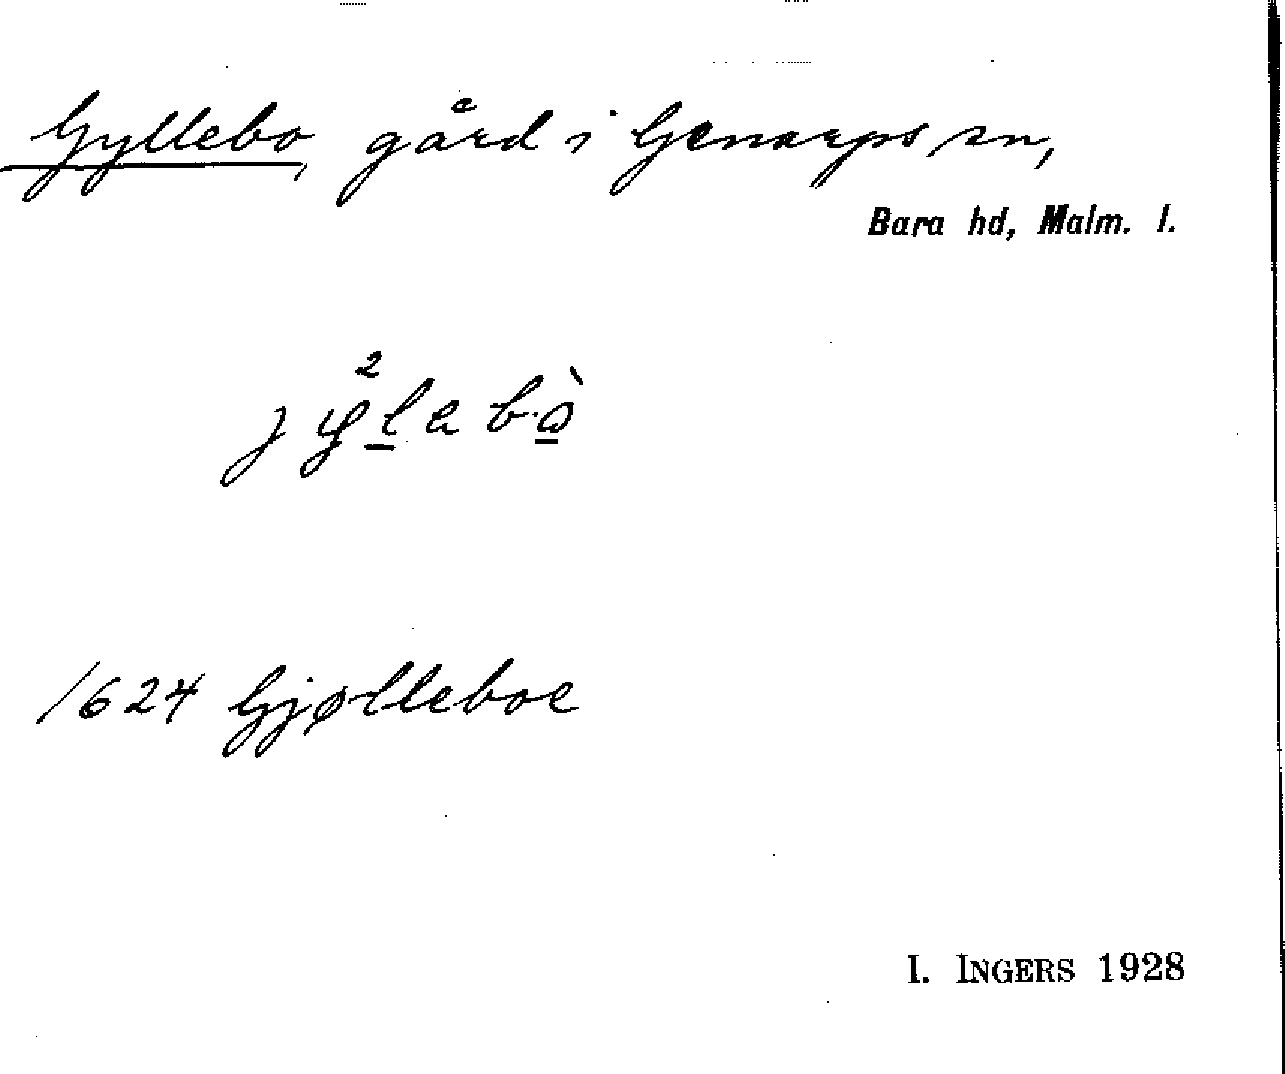 Gyllebo, gård i Genarps sn,
Bara hd, Malm. l.
1624 Gjølleboe
I. INGERS 1928